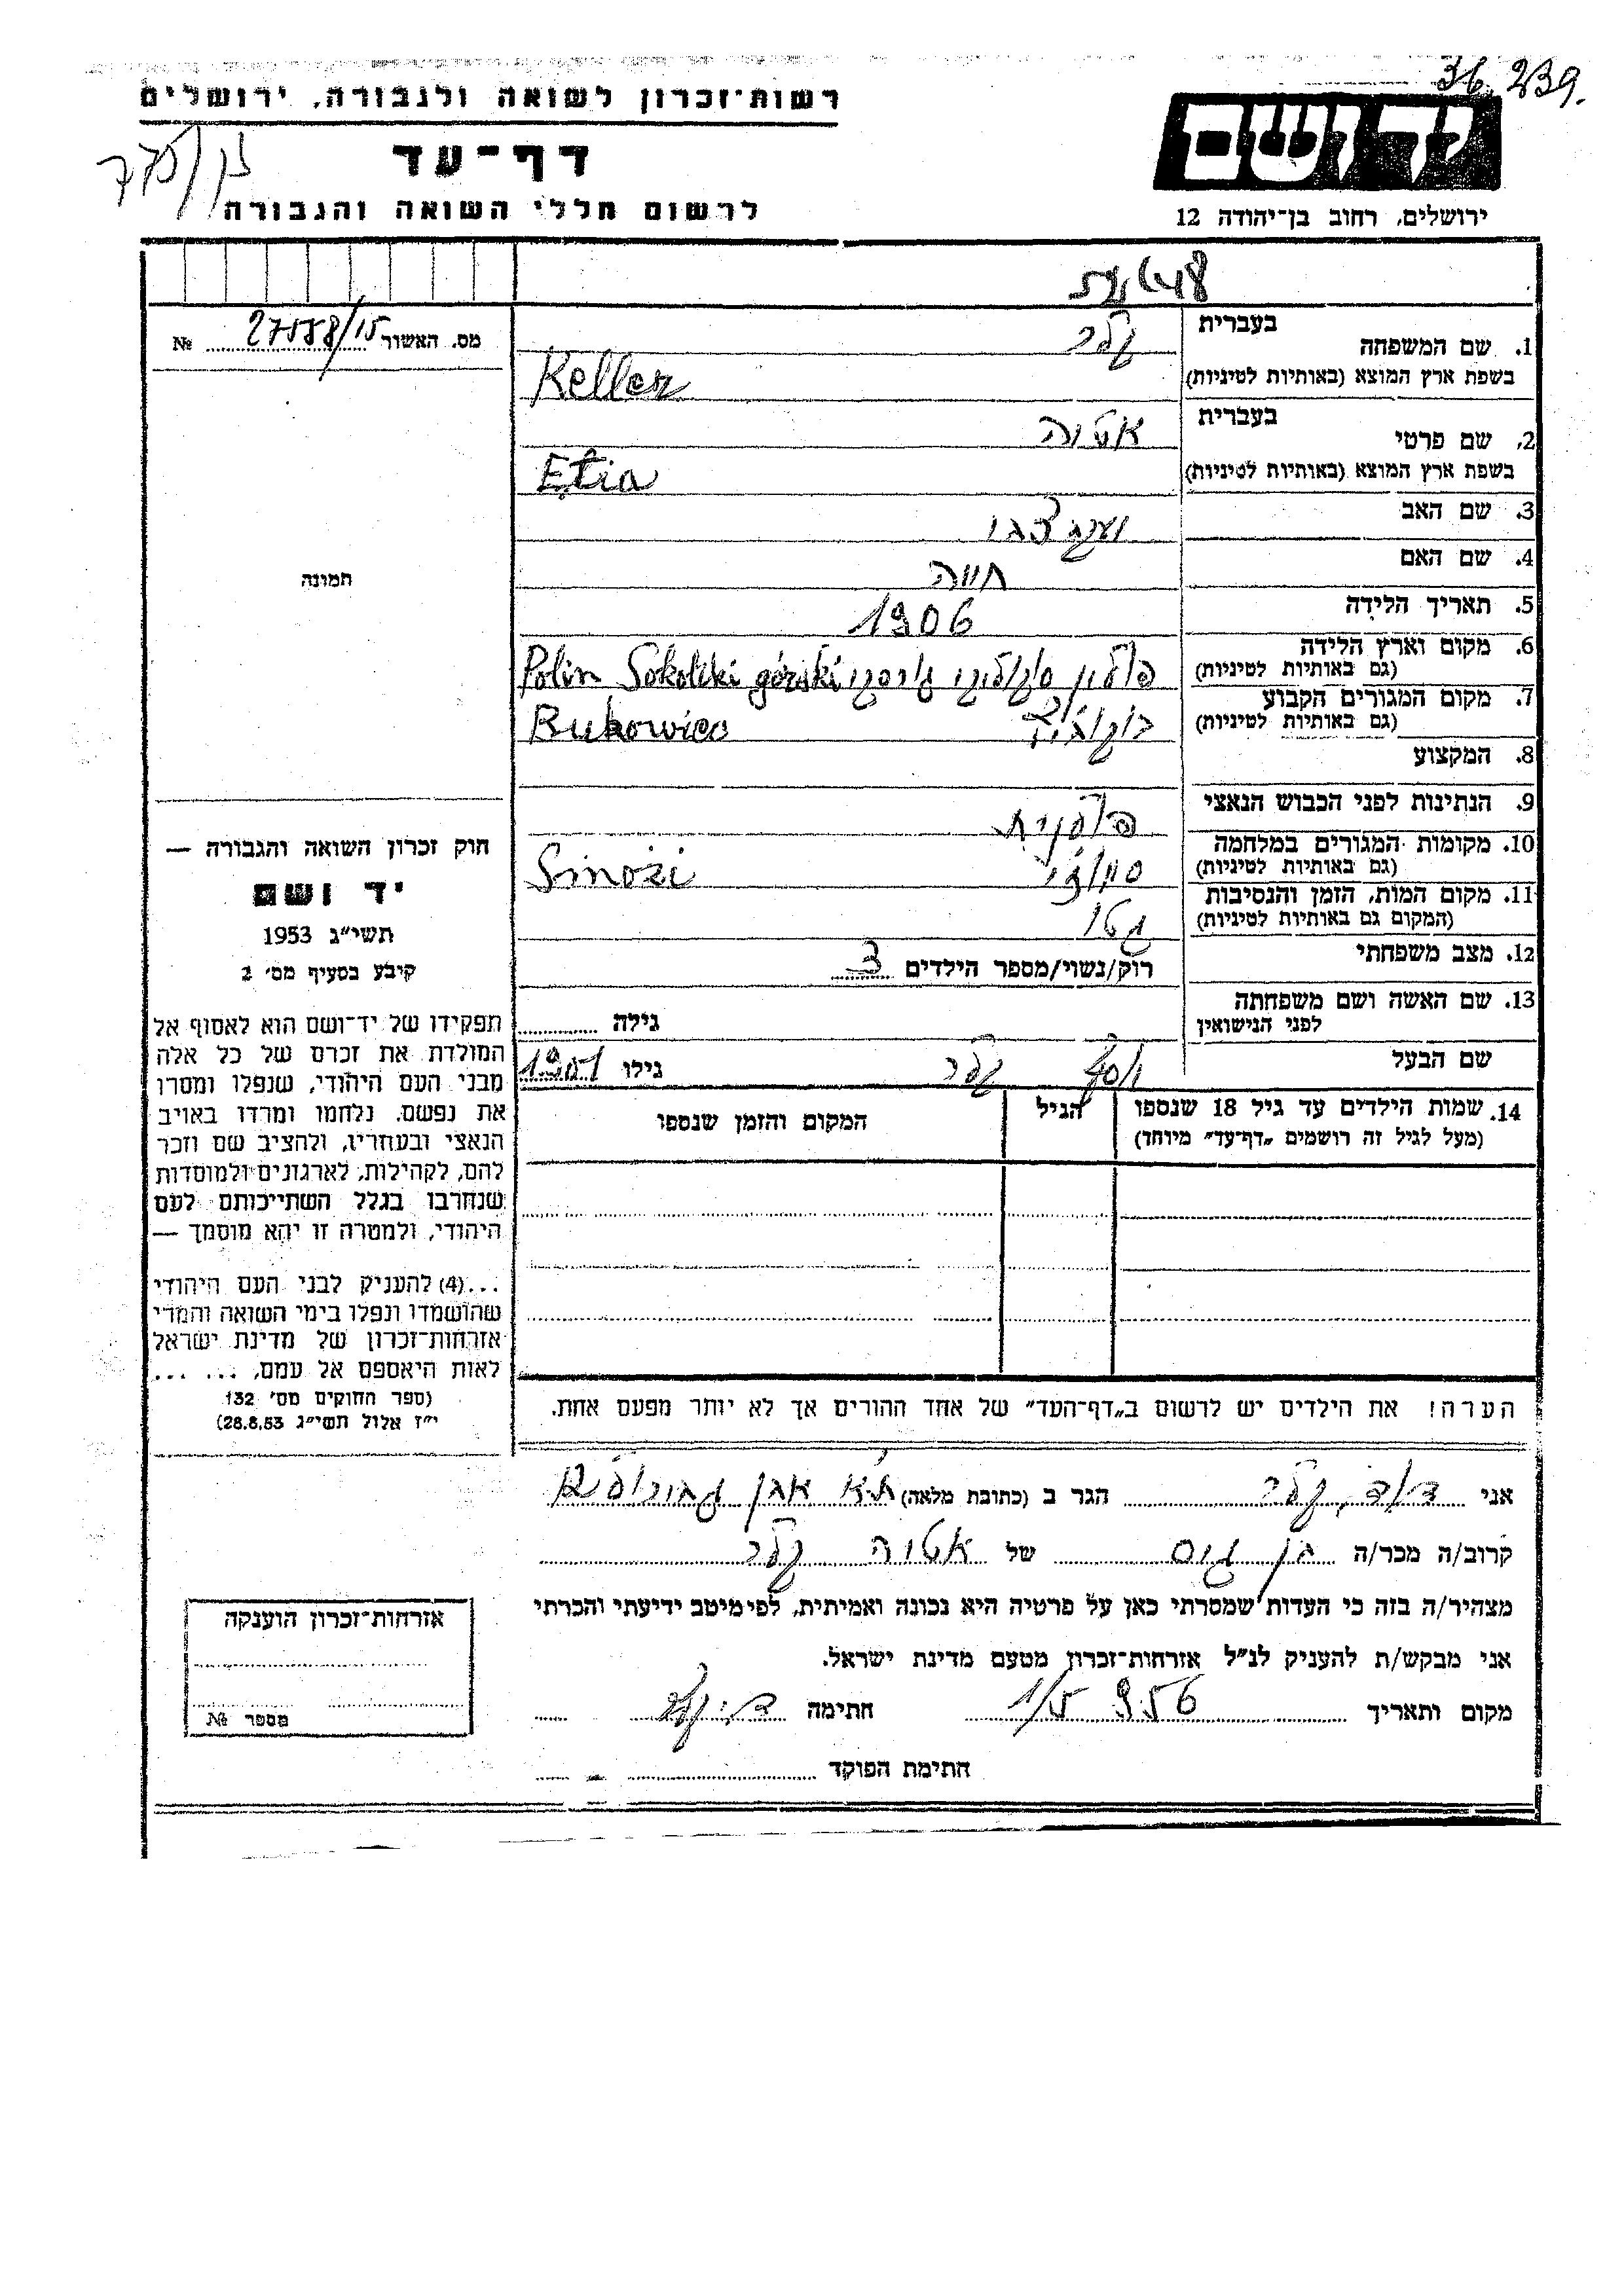 36.239.
רשות־זכרון לשואה ולגבורה, ירושלים
דף־עד
לרשום חללי השואה והגבורה
ירושלים, רחוב בן־יהודה 12
מס. האשור 27558/15 №
בעברית
1. שם המשפחה קלר
בשפת ארץ המוצא (באותיות לטיניות) Keller
בעברית
2. שם פרטי אטיה
בשפת ארץ המוצא (באותיות לטיניות) Etia
3. שם האב
4. שם האם חווה
5. תאריך הלידה 1906
6. מקום וארץ הלידה פולין סוקוליקי גורסקי Polin Sokoliki górski
(גם באותיות לטיניות)
7. מקום המגורים הקבוע Bukowiec
(גם באותיות לטיניות)
8. המקצוע
9. הנתינות לפני הכבוש הנאצי פולנית
10. מקומות המגורים במלחמה Smoźi
(גם באותיות לטיניות)
11. מקום המות, הזמן והנסיבות גטו
(המקום גם באותיות לטיניות)
12. מצב משפחתי רוק/נשוי/מספר הילדים 3
13. שם האשה ושם משפחתה
לפני הנישואין גילה
שם הבעל יוסף קלר גילו 1901
14. שמות הילדים עד גיל 18 שנספו הגיל המקום והזמן שנספו
(מעל לגיל זה רושמים „דף־עד” מיוחד)
הערה! את הילדים יש לרשום ב„דף־העד” של אחד ההורים אך לא יותר מפעם אחת.
תמונה
חוק זכרון השואה והגבורה —
יד ושם
תשי״ג 1953
קיבע בסעיף מס׳ 2
תפקידו של יד־ושם הוא לאסוף אל
המולדת את זכרם של כל אלה
מבני העם היהודי, שנפלו ומסרו
את נפשם, נלחמו ומרדו באויב
הנאצי ובעוזריו, ולהציב שם וזכר
להם, לקהילות, לארגונים ולמוסדות
שנחרבו בגלל השתייכותם לעם
היהודי, ולמטרה זו יהא מוסמך —
...(4) להעניק לבני העם היהודי
שהושמדו ונפלו בימי השואה והמרי
אזרחות־זכרון של מדינת ישראל
לאות היאספם אל עמם. ... ...
(ספר החוקים מס׳ 132
י״ז אלול תשי״ג 28.8.53)
אני דוד קלר הגר ב (כתובת מלאה) ת״א אבן גבירול
קרוב/ה מכר/ה בן גיס של אטיה קלר
מצהיר/ה בזה כי העדות שמסרתי כאן על פרטיה היא נכונה ואמיתית, לפי מיטב ידיעתי והכרתי
אני מבקש/ת להעניק לנ״ל אזרחות־זכרון מטעם מדינת ישראל.
מקום ותאריך 1/5 956 חתימה ד. קלר
חתימת הפוקד
אזרחות־זכרון הוענקה
מספר №